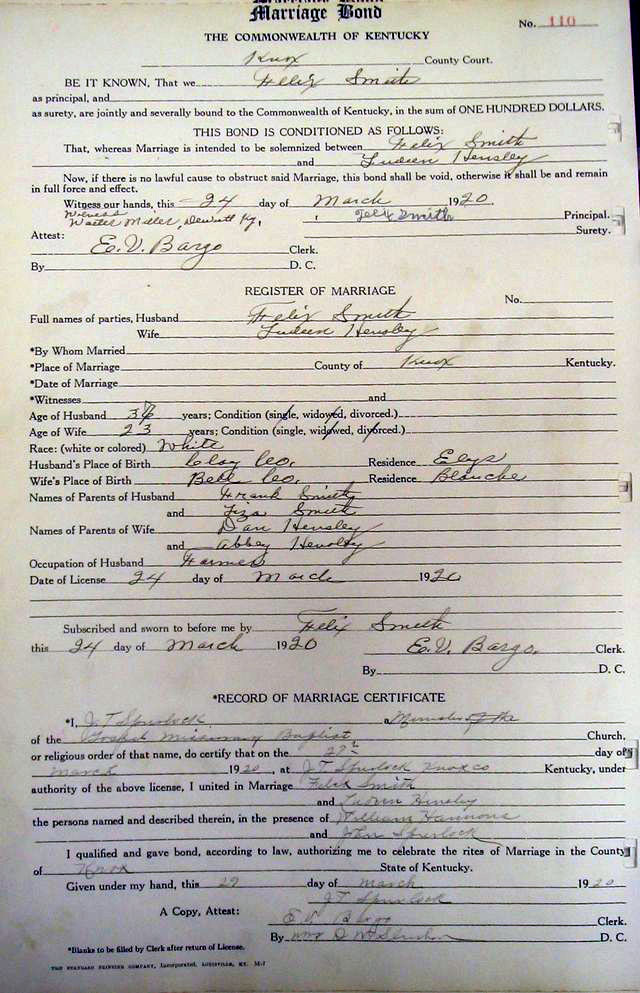 Marriage Bond
No. 110
THE COMMONWEALTH OF KENTUCKY
Knox County Court.
BE IT KNOWN, That we Felix Smith
as principal, and
as surety, are jointly and severally bound to the Commonwealth of Kentucky, in the sum of ONE HUNDRED DOLLARS.
THIS BOND IS CONDITIONED AS FOLLOWS:
That, whereas Marriage is intended to be solemnized between Felix Smith
and Hensley
Now, if there is no lawful cause to obstruct said Marriage, this bond shall be void, otherwise it shall be and remain
in full force and effect.
Witness our hands, this 24 day of March 1920.
Witness
Walter Miller, Dewitt Ky, Felix Smith Principal.
Surety.
Attest:
E. V. Bargo Clerk.
By D. C.
REGISTER OF MARRIAGE
No.
Full names of parties, Husband Felix Smith
Wife Hensley
*By Whom Married
*Place of Marriage County of Knox Kentucky.
*Date of Marriage
*Witnesses and
Age of Husband years; Condition (single, widowed, divorced.)
Age of Wife 23 years; Condition (single, widowed, divorced.)
Race: (white or colored) White
Husband's Place of Birth Clay Co. Residence Elys
Wife's Place of Birth Bell Co. Residence Blanche
Names of Parents of Husband Frank Smith
and Liza Smith
Names of Parents of Wife Dan Hensley
and Abbey Hensley
Occupation of Husband Farmer
Date of License 24 day of March 1920
Subscribed and sworn to before me by Felix Smith
this 24 day of March 1920 E. V. Bargo. Clerk.
By D. C.
*RECORD OF MARRIAGE CERTIFICATE
*I, J T Spurlock a Minister of the
of the Gospel Missionary Baptist Church,
or religious order of that name, do certify that on the 29th day of
March 1920, at J T Spurlock Knox co Kentucky, under
authority of the above license, I united in Marriage Felix Smith
and Hensley
the persons named and described therein, in the presence of William Hammons
and John Spurlock
I qualified and gave bond, according to law, authorizing me to celebrate the rites of Marriage in the County
of Knox State of Kentucky.
Given under my hand, this 29 day of March 1920
J T Spurlock
A Copy, Attest: E V Bargo Clerk.
By D. C.
*Blanks to be filled by Clerk after return of License.
THE STANDARD PRINTING COMPANY, Incorporated, LOUISVILLE, KY.